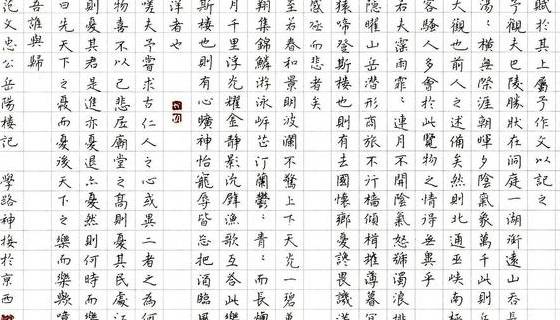 賦於其上屬予作文以記之
予觀夫巴陵勝狀在洞庭一湖銜遠山吞長
湯：橫無際涯朝暉夕陰氣象萬千此則岳
大觀也前人之述備矣然則北通巫峡南極
客騷人多會於此覽物之情得無異乎
若夫霪雨霏：連月不開陰風怒號濁浪排
隱曜山岳潛形商旅不行檣傾楫摧薄暮冥
猿啼登斯樓也則有去國懷鄉憂讒畏譏滿
感極而悲者矣
至若春和景明波瀾不驚上下天光一碧萬
翔集錦鱗游泳岸芷汀蘭鬱：青：而長煙
月千里浮光耀金靜影沉璧漁歌互答此樂
斯樓也則有心曠神怡寵辱皆忘把酒臨風
洋者也
嗟夫予嘗求古仁人之心或異二者之為何
物喜不以己悲居廟堂之高則憂其民處江
則憂其君是進亦憂退亦憂然則何時民樂
曰先天下之憂而憂後天下之樂而樂歟噫
吾誰與歸
范文忠公岳陽樓記 學路神接於京西